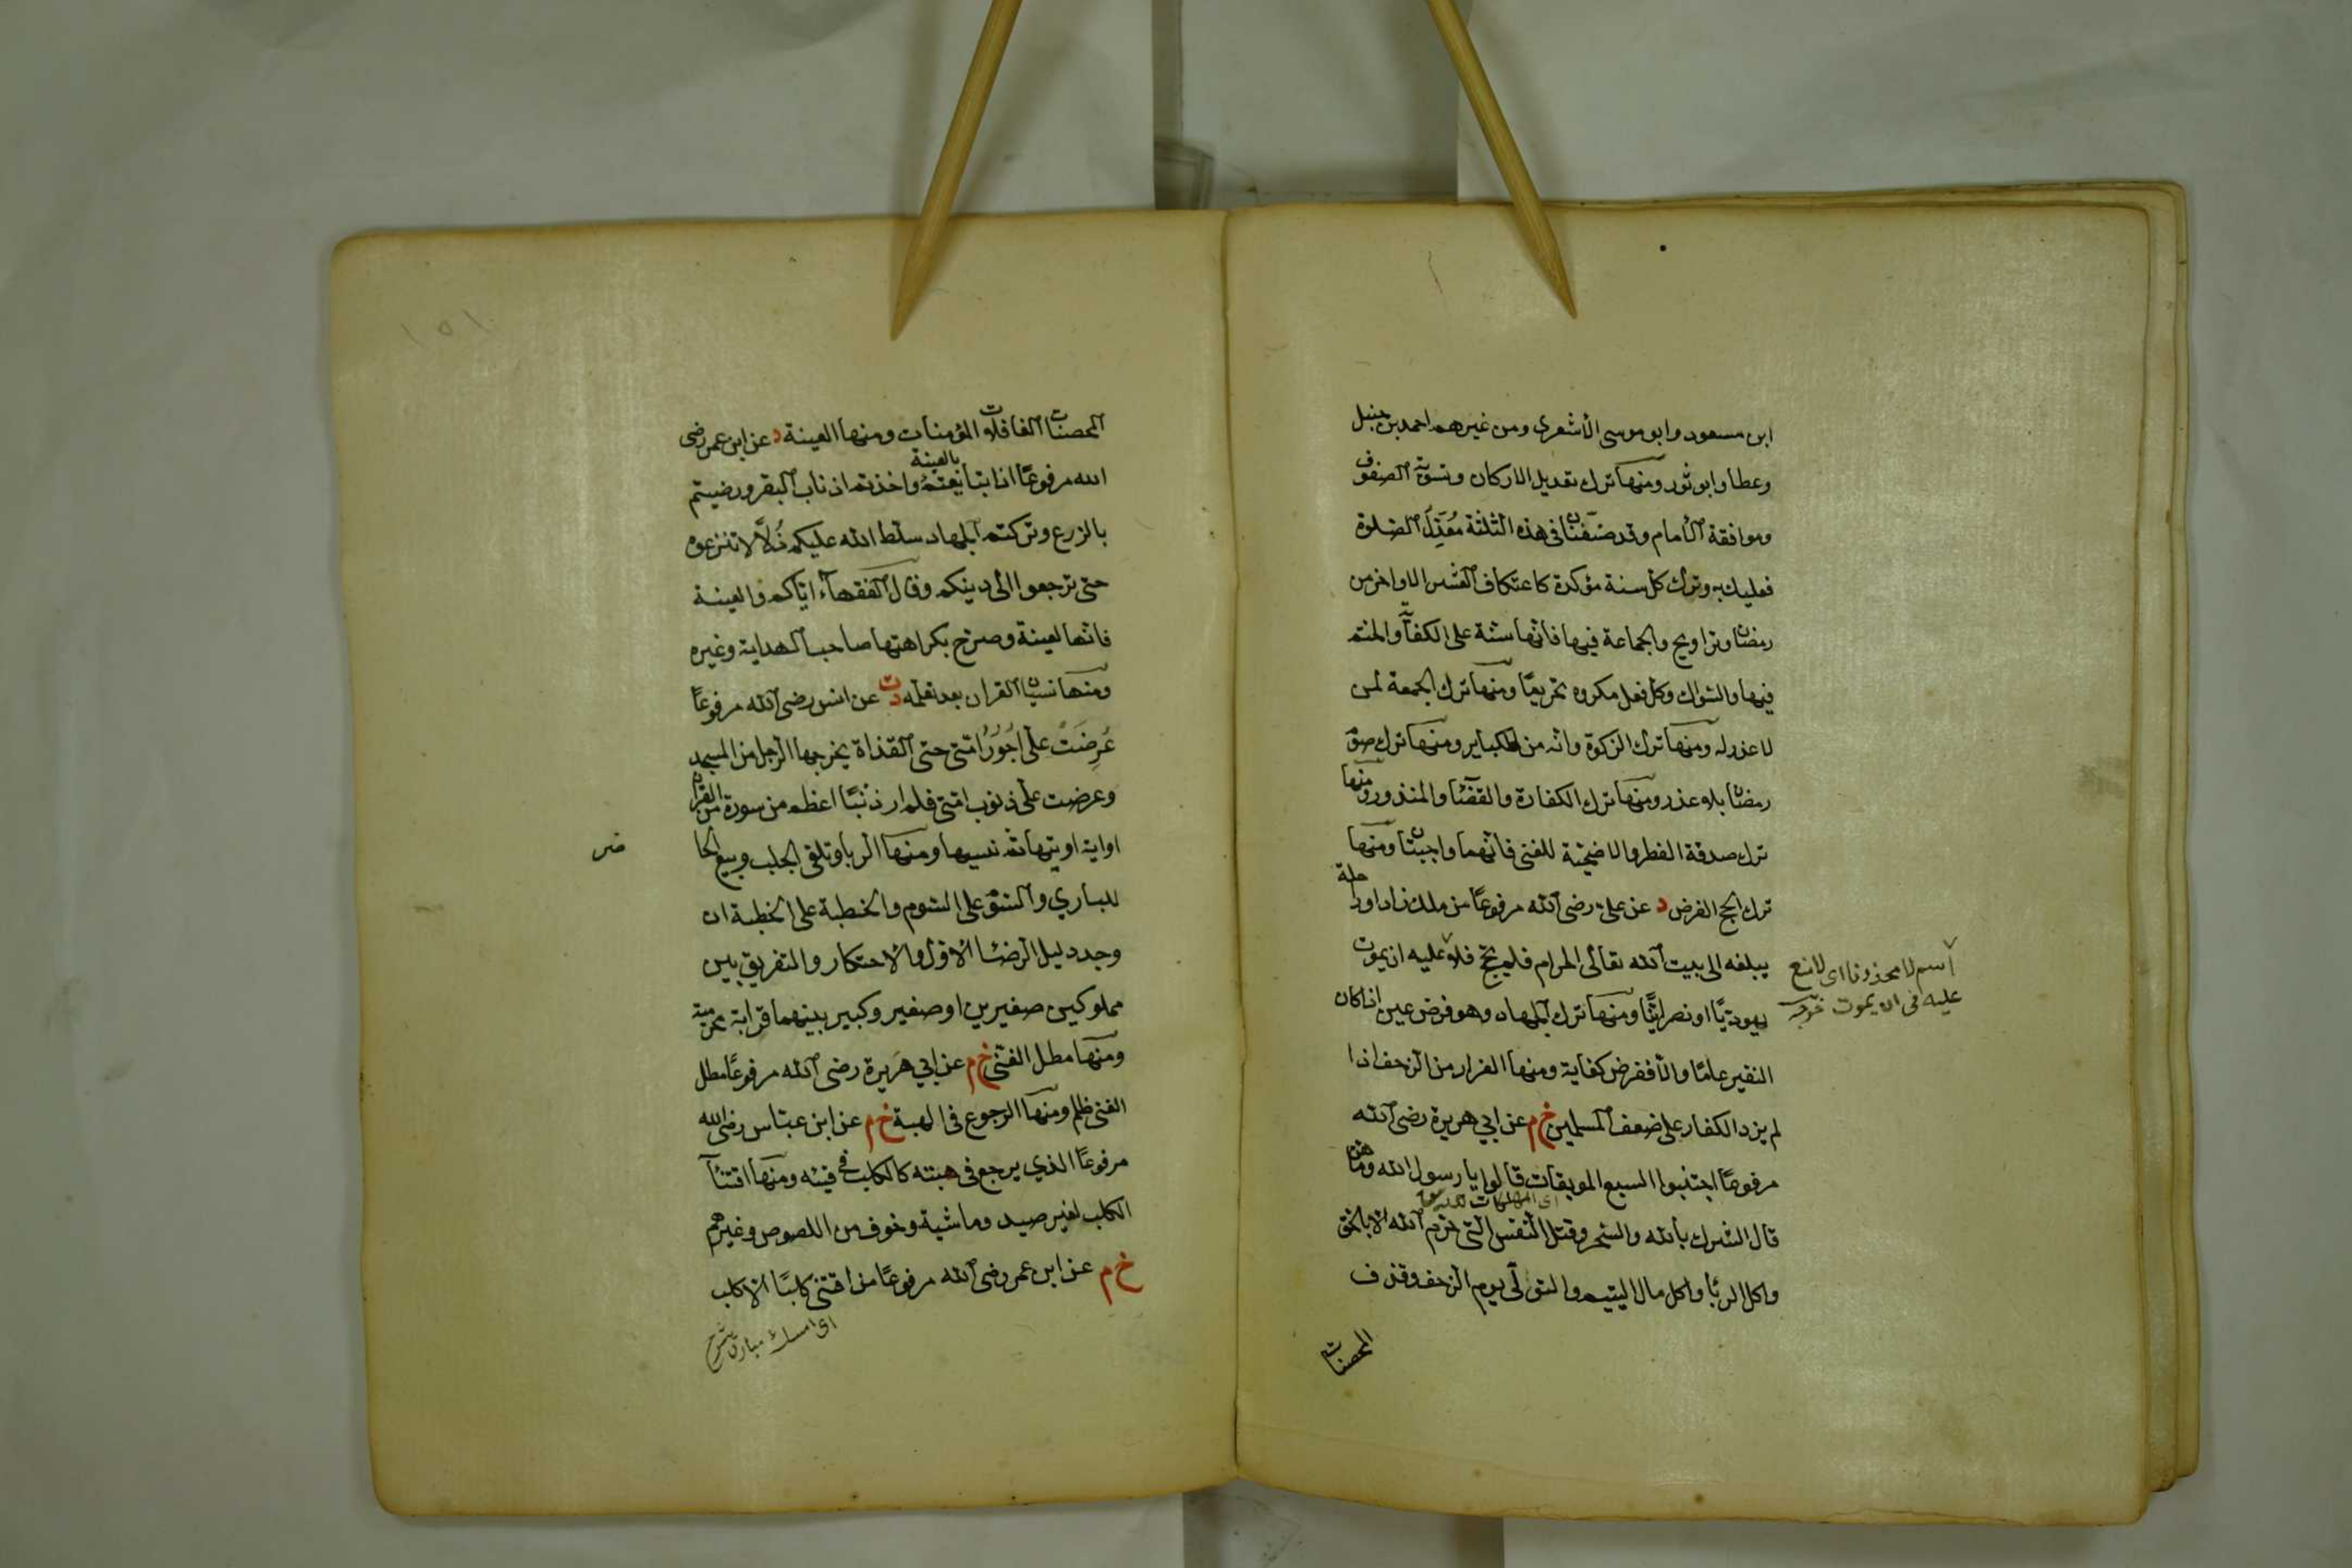 ابن مسعود وابو موسى الأشعرى ومن غيرهم احمد بن حنبل
وعطا وابو ثور ومنها ترك تعديل الاركان وتسوية الصفوف
وموافقة الأمام وقد صنفنا فى هذه الثلثة معدل الصلوة
فعليك به وترك كل سنة مؤكدة كاعتكاف العشر الاواخر من
رمضان وتراويح والجماعة فيها فانها سنة على الكفاية والختم
فيها والسواك وكل فعل مكروه تحريما ومنها ترك الجمعة لمن
لا عذر له ومنها ترك الزكوة وانه من الكباير ومنها ترك صوم
رمضان بلا عذر ومنها ترك الكفارة والقضاء والمنذور ومنها
ترك صدقة الفطر والاضحية للغنى فانهما واجبتان ومنها
ترك الحج الفرض د عن على رضى الله مرفوعًا من ملك زادا وراحلة
يبلغه الى بيت الله تعالى الحرام فلم يحج فلا عليه ان يموت
يهوديًا او نصرانيًا ومنها ترك الجهاد وهو فرض عين اذا كان
النفير عامًا والا ففرض كفاية ومنها الفرار من الزحف اذا
لم يزد الكفار على ضعف المسلمين خ م عن ابي هريرة رضى الله
مرفوعًا اجتنبوا السبع الموبقات قالوا يا رسول الله وما هن
اى المهلكات
قال الشرك بالله والسحر وقتل النفس التى حرم الله الا بالحق
واكل الربا واكل مال اليتيم والتولى يوم الزحف وقذف
المحصنات
اسم لا محذوف اى لا منع
عليه فى ان يموت
١٥١
المحصنات الغافلات المؤمنات ومنها العينة د عن ابن عمر رضى
الله مرفوعًا اذا تبايعتم بالعينة واخذتم اذناب البقر ورضيتم
بالزرع وتركتم الجهاد سلط الله عليكم ذُلًّا لا تنزعوه
حتى ترجعوا الى دينكم وقال الفقهاء اياكم والعينة
فانها لعينة وصرح بكراهتها صاحب الهداية وغيره
ومنها نسيان القران بعد تعلمه د ت عن انس رضى الله مرفوعًا
عُرِضَتْ على اُجُورُ امتى حتى القذاة يخرجها الرجل من المسجد
وعرضت على ذنوب امتى فلم ار ذنبًا اعظم من سورة من القران
او اية اوتيها ثم نسيها ومنها الربا وتلقى الجلب وبيع الحا
ضر
للبادي والسوم على السوم والخطبة على الخطبة ان
وجد دليل الرضا الاول والاحتكار والتفريق بين
مملوكين صغيرين او صغير وكبير بينهما قرابة محرمية
ومنها مطل الغنى خ م عن ابي هريرة رضى الله مرفوعًا مطل
الغنى ظلم ومنها الرجوع فى الهبة خ م عن ابن عباس رضى الله
مرفوعًا الذي يرجع فى هبته كالكلب فى قيئه ومنها اقتناء
الكلب لغير صيد وماشية وخوف من اللصوص وغيرهم
خ م عن ابن عمر رضى الله مرفوعًا من اقتنى كلبًا الا كلب
اى امسك مبارق شرح